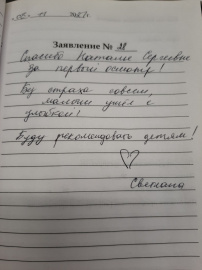 Заявление № 28
Спасибо Наталье Сергеевне
за первый осмотр!
Без страха совсем,
малыши ушёл с
улыбкой!
Буду рекомендовать детям!
Светлана